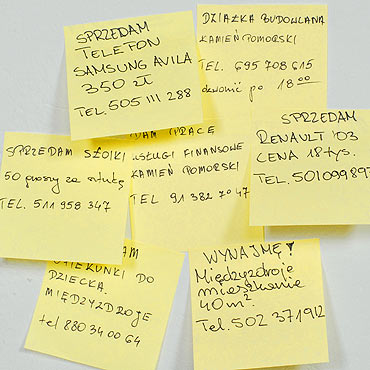 SPRZEDAM
TELEFON
SAMSUNG AVILA
350 zł
TEL. 505 111 288
DZIAŁKA BUDOWLANA
KAMIEŃ POMORSKI
TEL. 695 708 615
dzwonić po 18 00
SPRZEDAM SŁOIKI
50 groszy za sztukę
TEL. 511 958 347
DAM PRACĘ
USŁUGI FINANSOWE
KAMIEŃ POMORSKI
TEL 91 382 70 47
SPRZEDAM
RENAULT '03
CENA 18 tys.
TEL. 501099897
DO
DZIECKA.
MIĘDZYZDROJE
tel 880 34 00 64
WYNAJMĘ!
Międzyzdroje
mieszkanie
40m².
Tel. 502 371912